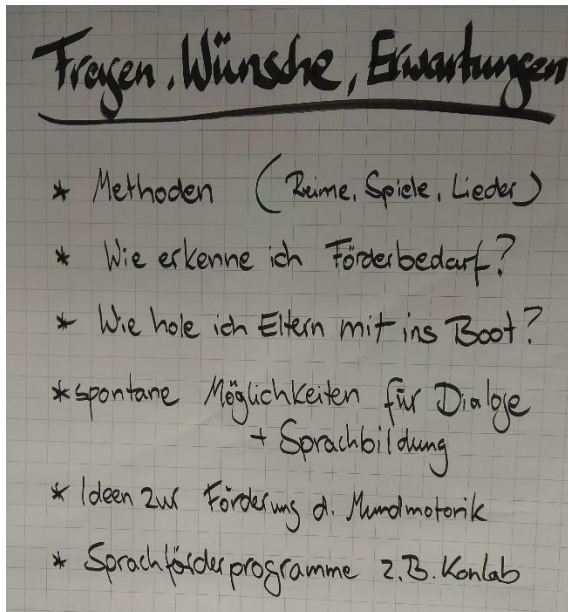 Fragen, Wünsche, Erwartungen
* Methoden (Reime, Spiele, Lieder)
* Wie erkenne ich Förderbedarf?
* Wie hole ich Eltern mit ins Boot?
* spontane Möglichkeiten für Dialoge
+ Sprachbildung
* Ideen zur Förderung d. Mundmotorik
* Sprachförderprogramme z.B. Konlab